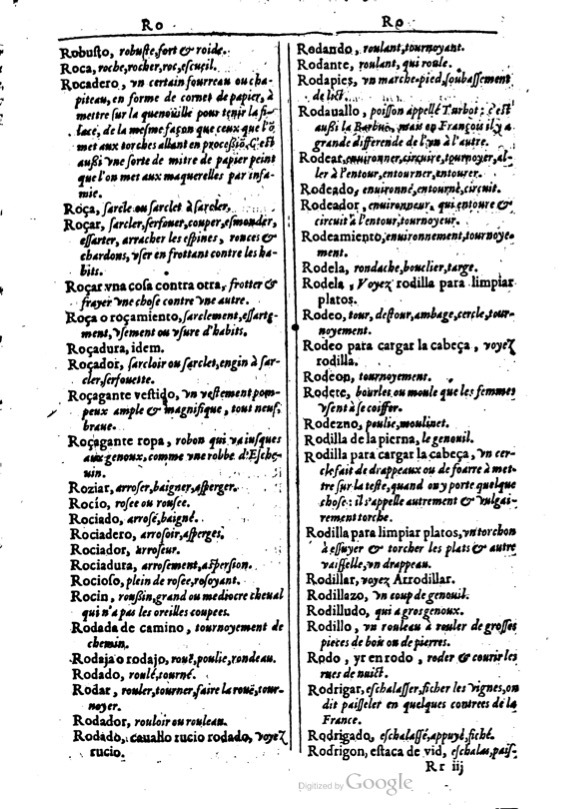 Ro
Robusto, robuste, fort & roide.
Roca, roche, rocher, roc, escueil.
Rocadero, vn certain fourreau ou cha-
piteau, en forme de cornet de papier, à
mettre sur la quenoüille pour tenir la fi-
lace, de la mesme façon que ceux que l'õ
met aux torches allant en processiõ, C'est
aussi vne sorte de mitre de papier peint
que l'on met aux maquerelles par infa-
mie.
Roça, sarcle ou sarclet à sarcler.
Roçar, sarcler, serfouer, couper, esmonder,
essarter, arracher les espines, ronces &
chardons, vser en frottant contre les ha-
bits.
Roçar vna cosa contra otra, frotter &
frayer vne chose contre vne autre.
Roça o roçamiento, sarclement, essarte-
ment, vsement ou vsure d'habits.
Roçadura, idem.
Roçador, sarcloir ou sarclet, engin à sar-
cler, serfouette.
Roçagante vestido, vn vestement pom-
peux ample & magnifique, tout neuf,
braue.
Roçagante ropa, robon qui va iusques
aux genoux, comme vne robbe d'Esche-
uin.
Roziar, arroser, baigner, asperger.
Rocío, rosee ou rousee.
Rociado, arrosé, baigné.
Rociadero, arrosoir, asperges.
Rociador, arroseur.
Rociadura, arrosement, aspersion.
Rocioso, plein de rosee, rosoyant.
Rocin, roussin, grand ou mediocre cheual
qui n'a pas les oreilles coupees.
Rodada de camino, tournoyement de
chemin.
Rodaja o rodajo, rouë, poulie, rondeau.
Rodado, roulé, tourné.
Rodar, rouler, tourner, faire la rouë, tour-
noyer.
Rodador, rouloir ou rouleau.
Rodado, cauallo rucio rodado, voyez
rucio.
Ro
Rodando, roulant, tournoyant.
Rodante, roulant, qui roule.
Rodapies, vn marche-pied, soubassement
de lict.
Rodauallo, poisson appellé Turbot: c'est
aussi la Barbuë, mais en François il y a
grande difference de l'vn à l'autre.
Rodear, enuironner, circuire, tournoyer, al-
ler à l'entour, entourner, entourer.
Rodeado, enuironné, entourné, circuit.
Rodeador, enuironneur, qui entoure &
circuit à l'entour, tournoyeur.
Rodeamiento, enuironnement, tournoye-
ment.
Rodela, rondache, bouclier, targe.
Rodela, Voyez rodilla para limpiar
platos.
Rodeo, tour, destour, ambage, cercle, tour-
noyement.
Rodeo para cargar la cabeça, voyez
rodilla.
Rodeon, tournoyement.
Rodete, bourles ou moule que les femmes
vsent à se coiffer.
Rodezno, poulie, moulinet.
Rodilla de la pierna, le genouil.
Rodilla para cargar la cabeça, vn cer-
cle fait de drappeaux ou de foarre à met-
tre sur la teste, quand on y porte quelque
chose: il s'appelle autrement & vulgai-
rement torche.
Rodilla para limpiar platos, vn torchon
à essuyer & torcher les plats & autre
vaisselle, vn drappeau.
Rodillar, voyez Arrodillar.
Rodillazo, vn coup de genouil.
Rodilludo, qui a gros genoux.
Rodillo, vn rouleau à rouler de grosses
pieces de bois ou de pierres.
Rodo, yr en rodo, roder & courir les
rues de nuict.
Rodrigar, eschalasser, ficher les vignes, on
dit paisseler en quelques contrees de la
France.
Rodrigado, eschalassé, appuyé, fiché.
Rodrigon, estaca de vid, eschalas, pais-
Rr iij
Digitized by Google